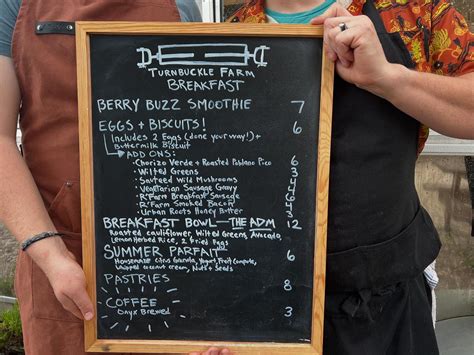 Turnbuckle Farm
Breakfast
Berry Buzz Smoothie 7
Eggs + Biscuits! 6
Includes 2 Eggs (done your way!) +
Buttermilk Biscuit
Add Ons:
· Chorizo Verde + Roasted Poblano Pico 6
· Wilted Greens 3
· Sauteed Wild Mushrooms 4
· Vegetarian Sausage Gravy
· R'Farm Breakfast Sausage
· R'Farm Smoked Bacon
· Urban Roots Honey Butter 2
Breakfast Bowl — The ADM 12
Roasted Cauliflower, Wilted Greens, Avocado,
Lemon Herbed Rice, 2 Fried Eggs
Summer Parfait 6
Housemade Citrus Granola, Yogurt, Fruit Compote,
Whipped Coconut Cream, Nuts + Seeds
Pastries 8
Coffee 3
Onyx Brewed